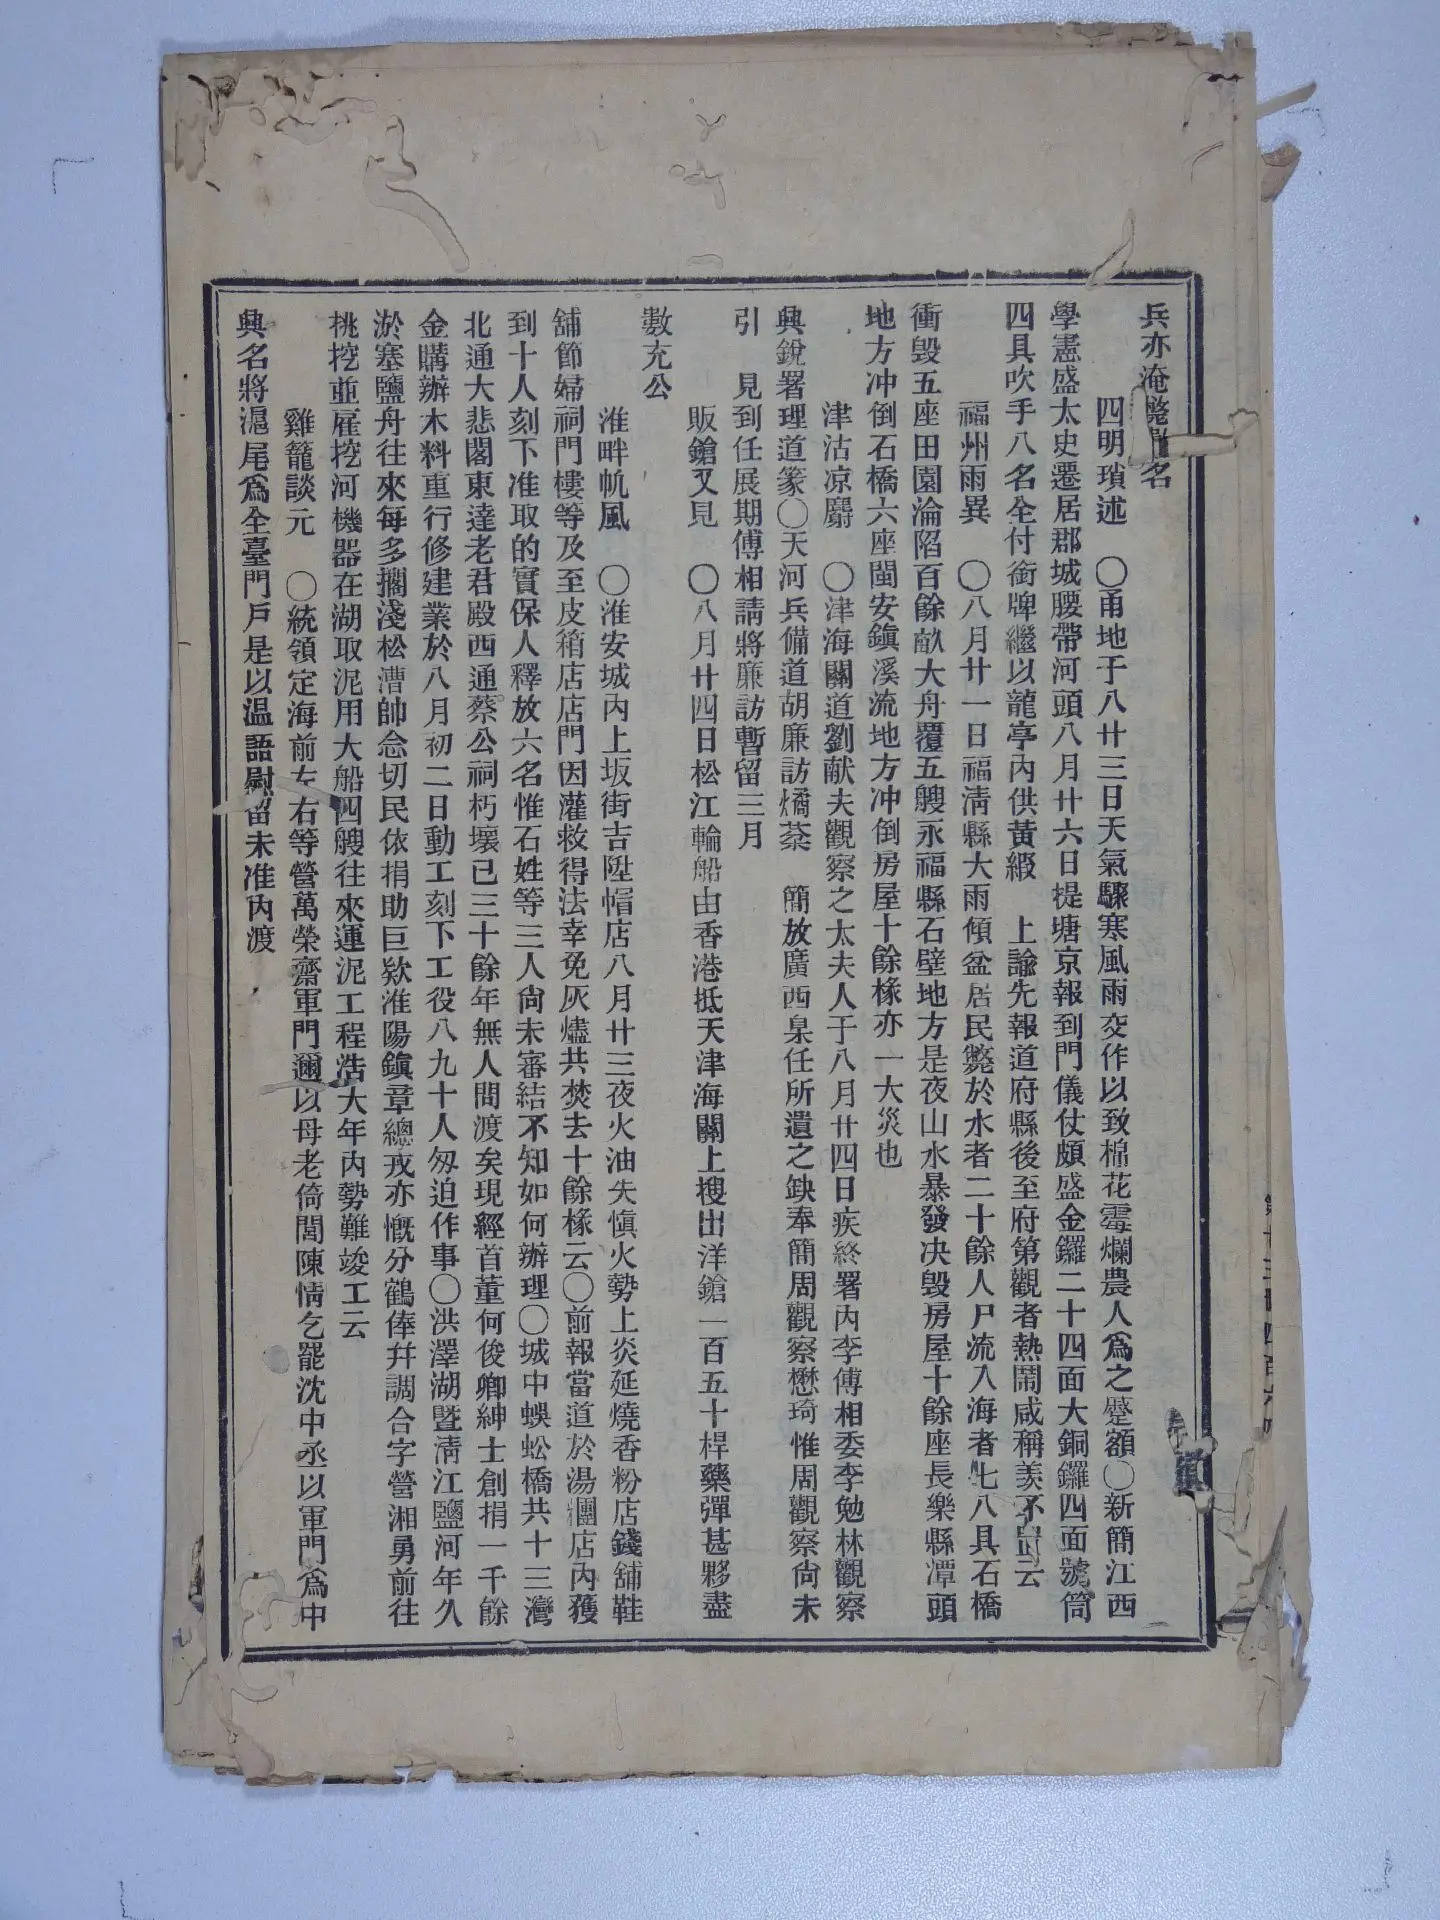 兵亦淹斃 名
四明瑣述　〇甬地于八廿三日天氣驟寒風雨交作以致棉花霉爛農人爲之蹙額〇新簡江西
學憲盛太史遷居郡城腰帶河頭八月廿六日提塘京報到門儀仗頗盛金鑼二十四面大銅鑼四面號筒
四具吹手八名全付銜牌繼以龍亭內供黃緞　上諭先報道府縣後至府第觀者熱鬧咸稱羨不置云
福州雨異　〇八月廿一日福清縣大雨傾盆居民斃於水者二十餘人尸流入海者七八具石橋
衝毀五座田園淪陷百餘畝大舟覆五艘永福縣石壁地方是夜山水暴發决毀房屋十餘座長樂縣潭頭
地方冲倒石橋六座閩安鎮溪流地方冲倒房屋十餘椽亦一大災也
津沽凉麝　〇津海關道劉献夫觀察之太夫人于八月廿四日疾終署內李傅相委李勉林觀察
興銳署理道篆〇天河兵備道胡廉訪燏棻　簡放廣西臬任所遺之缺奉簡周觀察懋琦惟周觀察尙未
引　見到任展期傅相請將廉訪暫留三月
販鎗又見　〇八月廿四日松江輪船由香港抵天津海關上搜出洋鎗一百五十桿藥彈甚夥盡
數充公
淮畔帆風　〇淮安城內上坂街吉陞帽店八月廿三夜火油失愼火勢上炎延燒香粉店錢舖鞋
舖節婦祠門樓等及至皮箱店店門因灌救得法幸免灰燼共焚去十餘椽云〇前報當道於湯糰店內獲
到十人刻下准取的實保人釋放六名惟石姓等三人尙未審結不知如何辦理〇城中蜈蚣橋共十三灣
北通大悲閣東達老君殿西通蔡公祠朽壞已三十餘年無人問渡矣現經首董何俊卿紳士創捐一千餘
金購辦木料重行修建業於八月初二日動工刻下工役八九十人匆迫作事〇洪澤湖暨清江鹽河年久
淤塞鹽舟往來每多擱淺松漕帥念切民依捐助巨欵淮陽鎮章總戎亦慨分鶴俸幷調合字營湘勇前往
挑挖並雇挖河機器在湖取泥用大船四艘往來運泥工程浩大年內勢難竣工云
雞籠談元　〇統領定海前左右等營萬榮齋軍門邇以母老倚閭陳情乞罷沈中丞以軍門爲中
興名將滬尾爲全臺門戶是以溫語慰留未准內渡